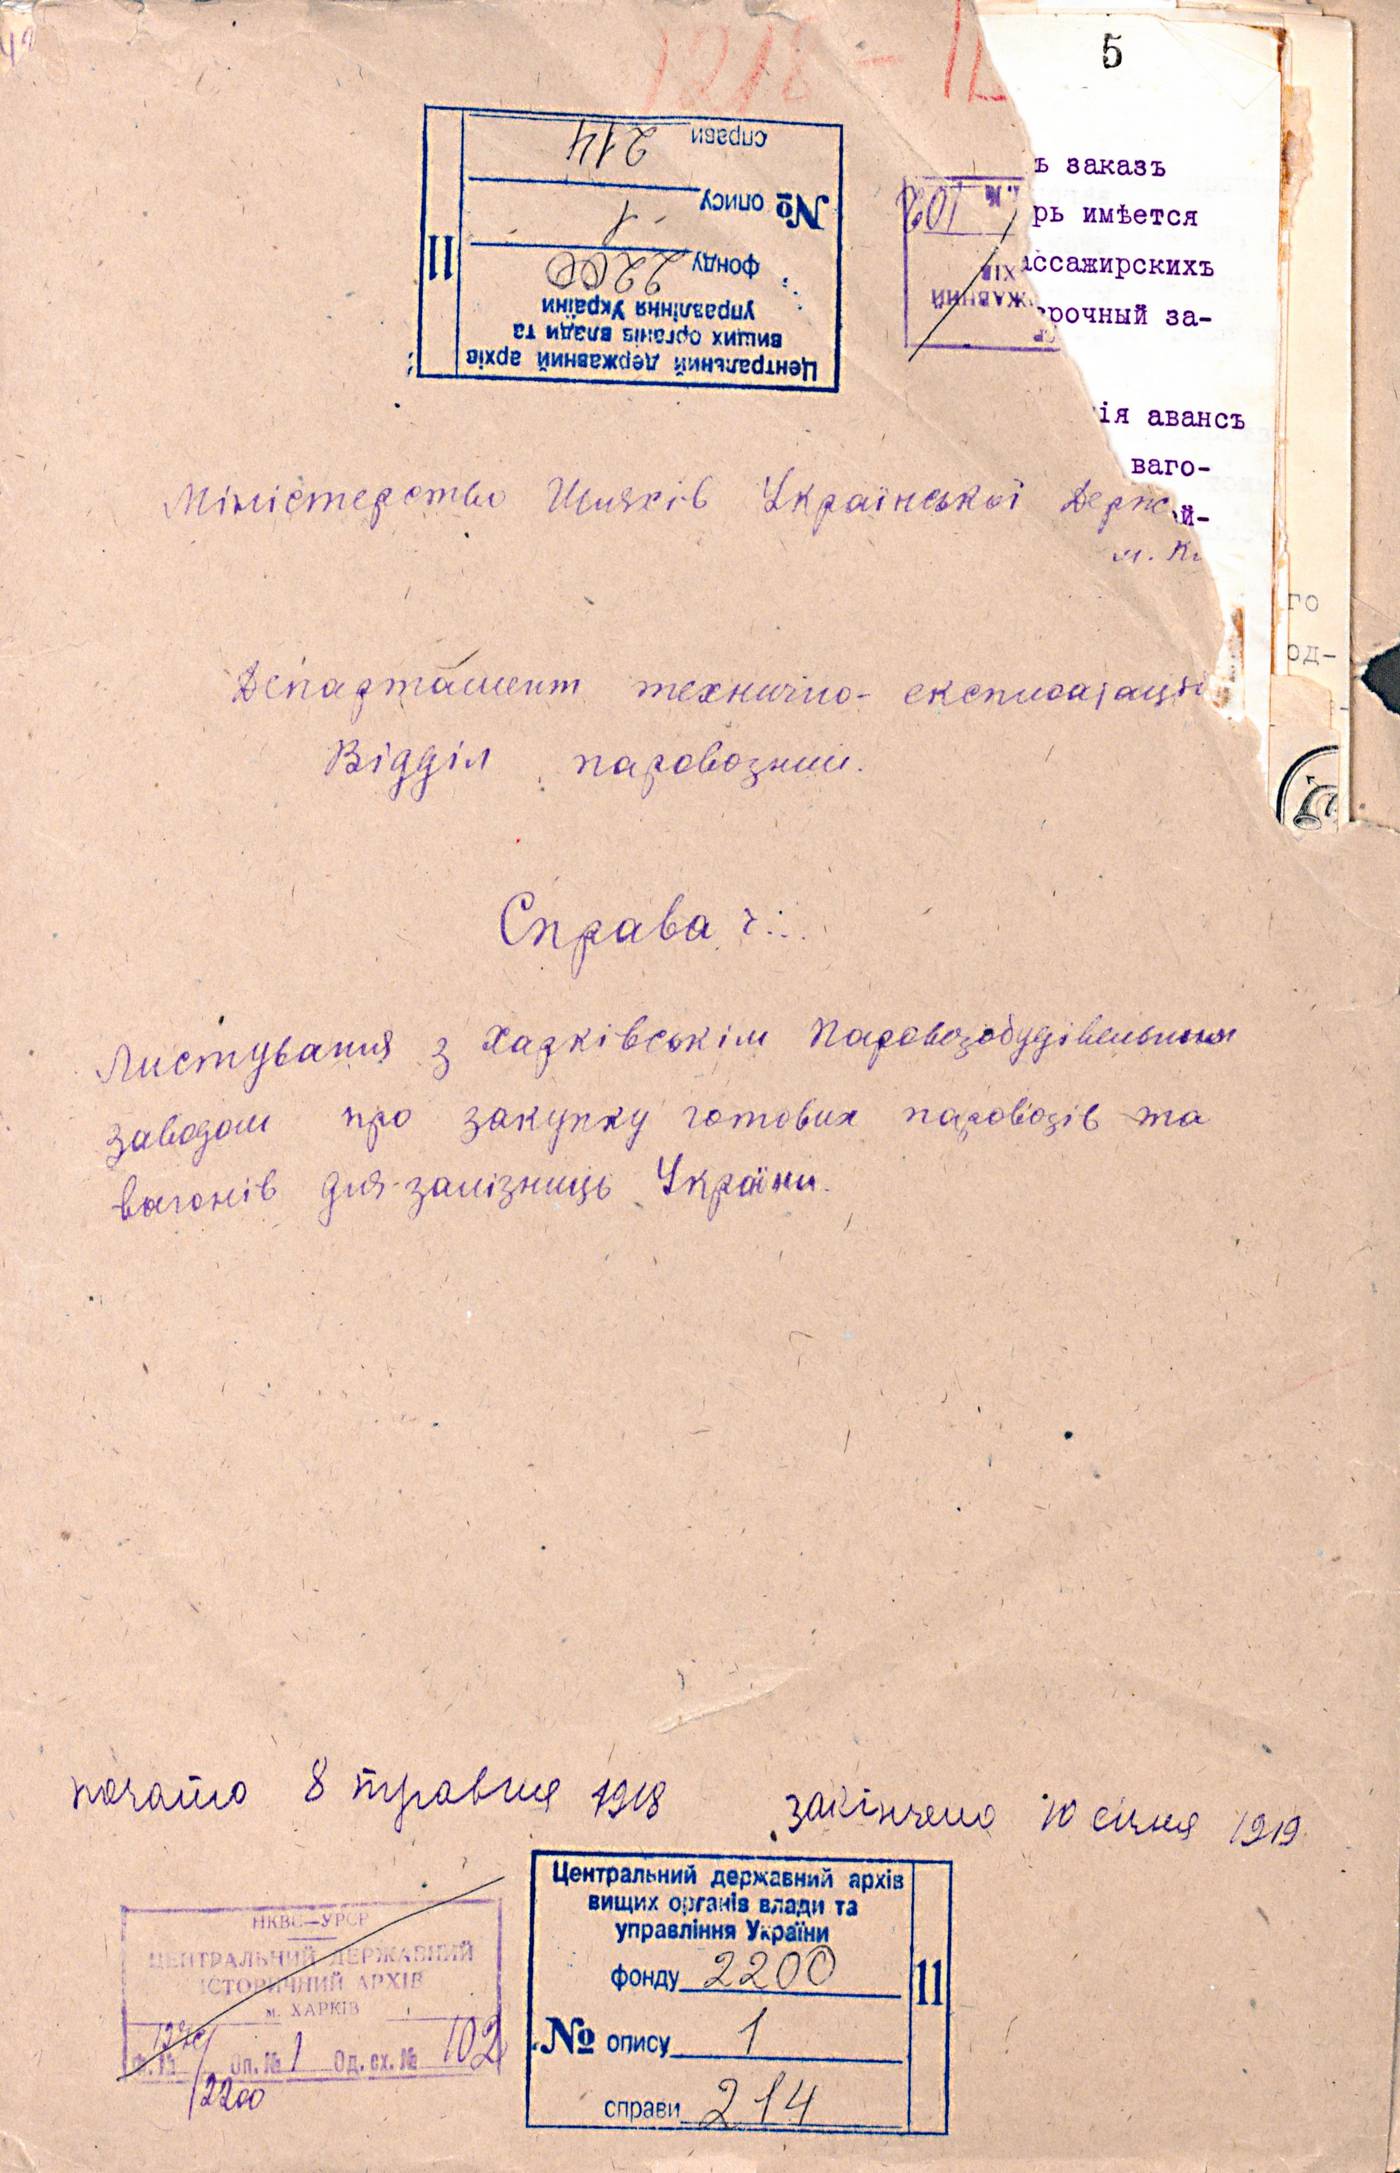 1218 -
5
справи 214
№ опису 1
фонду 2200
управління України
вищих органів влади та
Центральний державний архів
11
102
ъ заказъ
рь имѣется
ассажирскихъ
срочный за-
ія авансъ
ваго-
ой-
го
од-
Міністерство Шляхів Української Держ
м. К
Департамент технично- експлоатаці
Відділ паровозний.
Справа ч...
Листування з Харківськім Паровозобудівельним
заводом про закупку готових паровозів та
вагонів для залізниць України.
почато 8 травня 1918 закінчено 10 січня 1919
НКВС—УРСР
ЦЕНТРАЛЬНИЙ ДЕРЖАВНИЙ
ІСТОРИЧНИЙ АРХІВ
м. ХАРКІВ
Ф. № Оп. № 1 Од. сх. № 102
2200
Центральний державний архів
вищих органів влади та
управління України
фонду 2200
№ опису 1
справи 214
11